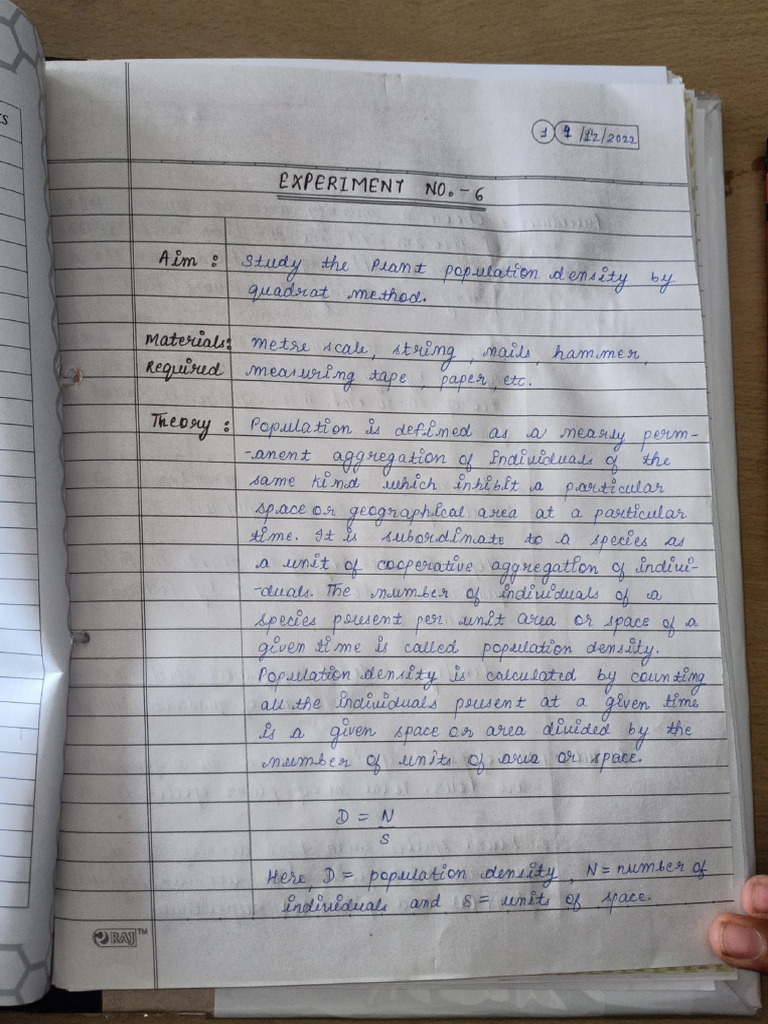 1 1/12/2022
EXPERIMENT NO.-6
Aim : Study the Plant population density by
quadrat method.
Materials: Metre scale, string, nails, hammer,
Required measuring tape, paper, etc.
Theory : Population is defined as a nearly perm-
-anent aggregation of individuals of the
same kind which inhibit a particular
space or geographical area at a particular
time. It is subordinate to a species as
a unit of cooperative aggregation of indivi-
-duals. The number of individuals of a
species present per unit area or space of a
given time is called population density.
Population density is calculated by counting
all the individuals present at a given time
is a given space or area divided by the
number of units of area or space.
D = N
S
Here, D = population density, N = number of
individuals and S = units of space.
RAJ™